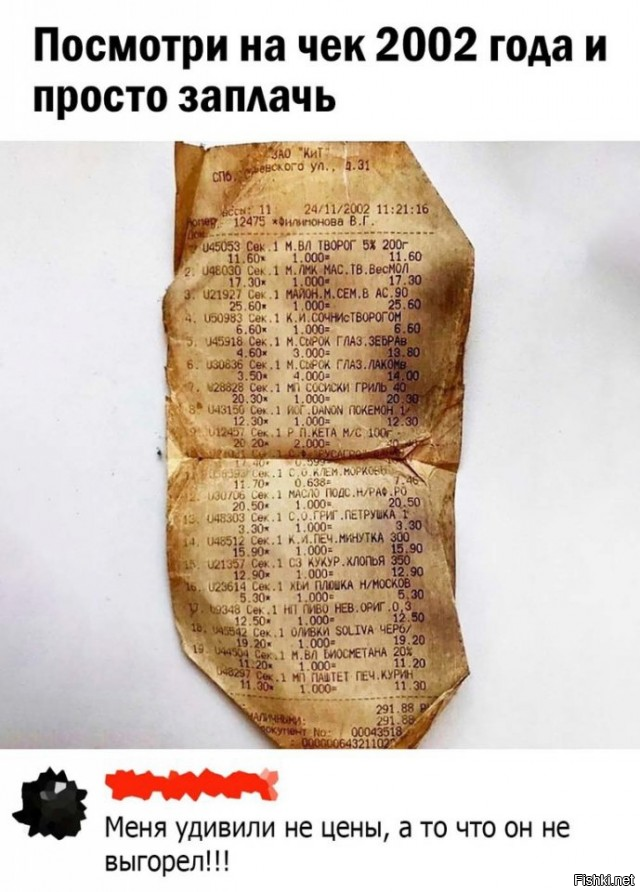 Посмотри на чек 2002 года и
просто заплачь
ЗАО "КиТ"
СПб, ул., д.31
11 24/11/2002 11:21:16
12475 *Филимонова В.Г.
U45053 Сек.1 М.ВЛ ТВОРОГ 5% 200г
11.60* 1.000= 11.60
2. U48030 Сек.1 М.ЛМК МАС.ТВ.ВесМОЛ
17.30* 1.000= 17.30
3. U21927 Сек.1 МАЙОН.М.СЕМ.В АС.90
25.60* 1.000= 25.60
4. U50983 Сек.1 К.И.СОЧНИсТВОРОГОМ
6.60* 1.000= 6.60
5. U45918 Сек.1 М.СЫРОК ГЛАЗ.ЗЕБРАв
4.60* 3.000= 13.80
6. U30836 Сек.1 М.СЫРОК ГЛАЗ.ЛАКОМв
3.50* 4.000= 14.00
7. U28828 Сек.1 МП СОСИСКИ ГРИЛЬ 40
20.30* 1.000= 20.30
8. U43150 Сек.1 ЙОГ.DANON ПОКЕМОН 1
12.30* 1.000= 12.30
9. U12457 Сек.1 Р П.КЕТА М/С 100г
20.20* 2.000=
17.40* 0.599=
Сек.1 С.О.КЛЕМ.МОРКОВЬ
11.70* 0.638= 7.46
12. U30706 Сек.1 МАСЛО ПОДС.Н/РАФ.РО
20.50* 1.000= 20.50
13. U48303 Сек.1 С.О.ГРИГ.ПЕТРУШКА 1
3.30* 1.000= 3.30
14. U48512 Сек.1 К.И.ПЕЧ.МИНУТКА 300
15.90* 1.000= 15.90
15. U21357 Сек.1 СЗ КУКУР.ХЛОПЬЯ 350
12.90* 1.000= 12.90
16. U23614 Сек.1 ХБИ ПЛЮШКА Н/МОСКОВ
5.30* 1.000= 5.30
17. U9348 Сек.1 НП ПИВО НЕВ.ОРИГ.0,3
12.50* 1.000= 12.50
18. U45542 Сек.1 ОЛИВКИ SOLIVA ЧЕРБ/
19.20* 1.000= 19.20
19. U44504 Сек.1 М.ВЛ БИОСМЕТАНА 20%
11.20* 1.000= 11.20
U48297 Сек.1 МП ПАШТЕТ ПЕЧ.КУРИН
11.30* 1.000= 11.30
291.88
НАЛИЧНЫМИ: 291.88
Документ No: 00043518
Меня удивили не цены, а то что он не
выгорел!!!
Fishki.net